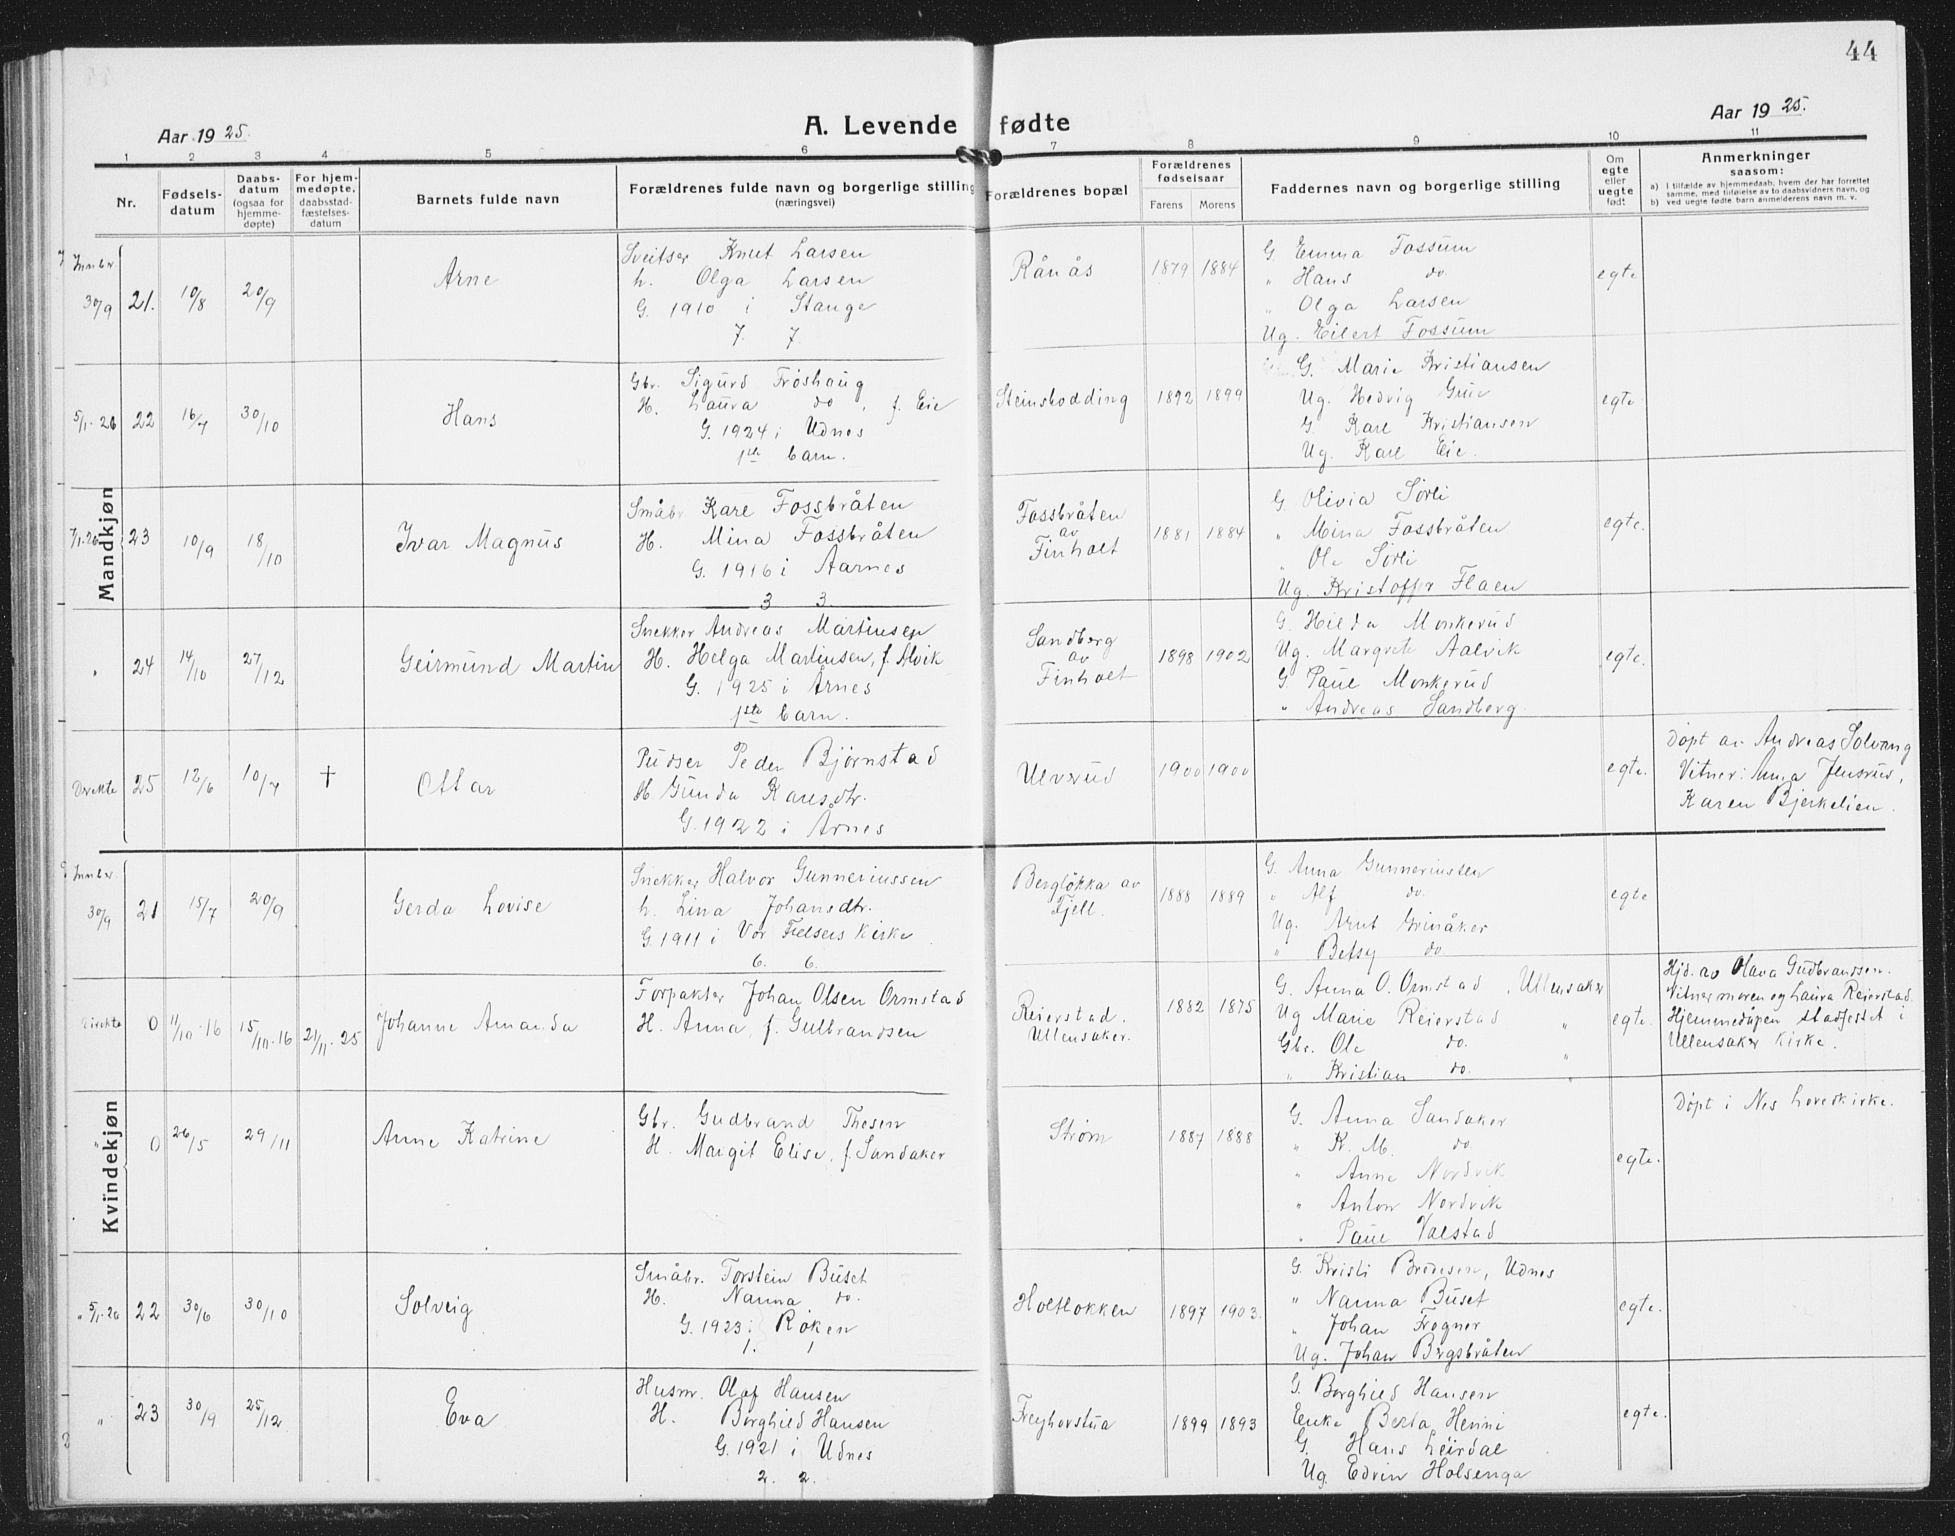 44
Aar 1925.
A. Levende fødte
Aar 1925.
1 2 3 4 5 6 7 8 9 10 11
Nr.
Fødsels-
datum
Daabs-
datum
(ogsaa for
hjemme-
døpte)
For hjem-
medøpte,
daabsstad-
fæstelses-
datum
Barnets fulde navn
Forældrenes fulde navn og borgerlige stilling
(næringsvei)
Forældrenes bopæl
Forældrenes
fødselsaar
Farens Morens
Faddernes navn og borgerlige stilling
Om
egte
eller
uegte
født
Anmerkninger
saasom:
a) I tilfælde av hjemmedaab, hvem der har forrettet
samme, med tilføielse av to daabsvidners navn, og
b) ved uegte fødte barn anmelderens navn m. v.
Mandkjøn
Innber.
30/9 21. 10/8 20/9
Arne
Sveitser Knut Larsen
h. Olga Larsen
G. 1910 i Stange
7. 7.
Rånås
1879 1884
G. Emma Fossum
" Hans do
" Olga Larsen
Ug. Eilert Fossum
egte
5/1-26 22 16/7 30/10
Hans
Gbr. Sigurd Frøshaug
H. Laura do, f. Eie
G. 1924 i Udnes
1ste barn.
Steinsbodding
1892 1899
G. Marie Kristiansen
Ug. Hedvig
G. Karl Kristiansen
Ug. Karl Eie.
egte
7/1-26 23 10/9 18/10
Ivar Magnus
Småbr. Karl Fossbråten
H. Mina Fossbråten
G. 1916 i Aarnes
3 3.
Fossbråten
av
Finholt
1881 1884
G. Olivia Sørli
" Mina Fossbråten
" Ole Sørli
Ug. Kristoffer Flaen
egte.
" 24 14/10 27/12
Geirmund Martin
Snekker Andreas Martinsen
H. Helga Martinsen, f. Alvik
G. 1925 i Årnes
1ste barn.
Sandberg
av
Finholt
1898 1902
G. Hilda Monkerud
Ug. Margrete Aalvik
G. Paul Monkerud
" Andreas Sandberg.
egte.
Direkte 25 12/6 10/7 †
Ottar
Pudser Peder Bjørnstad
H. Gunda Karlsdtr.
G. 1922 i Årnes
Ulverud
1900 1900
egte.
Døpt av Andreas Solvang
Vitner: Anna Jensrud,
Karen Bjerkelien.
Kvindekjøn
Innber.
30/9 21 15/7 20/9
Gerda Lovise
Snekker Halvor Gunneriussen
h. Lina Johansdtr.
G. 1911 i Vor Frelsers Kirke
6. 6.
Bergløkka av
Fjell.
1888 1889
G. Anna Gunneriussen
" Alf do.
Ug. Arnt Grinåker
" Betsy do
egte
Direkte 0 11/10-16 15/10-16 21/11-25
Johanne Amanda
Forpakter Johan Olsen Ormstad
H. Anna, f. Gulbrandsen
Reierstad.
Ullensaker.
1882 1875
G. Anna O. Ormstad, Ullensaker
Ug Marie Reierstad "
Gbr. Ole do. "
" Kristian do. "
egte.
Hjd. av Olava Gudbrandsen.
Vitner moren og Laura Reierstad.
Hjemmedåpen stadfestet i
Ullensaker kirke.
" 0 26/5 29/11
Anne Katrine
Gbr. Gudbrand Thesen
H. Margit Elise, f. Sandaker
Strøm
1887 1888
G. Anna Sandaker
" K. M. do
" Anne Nordvik
" Anton Nordvik
" Paul Valstad
egte.
Døpt i Nes hovedkirke.
" 5/1-26 22 30/6 30/10
Solveig
Småbr. Torstein Buset
H. Nanna do.
G. 1923 i Røken
1. 1
Holtløkken
1897 1903.
G. Kristi Brodesen, Udnes
" Nanna Buset
" Johan Frogner
Ug. Johan Bergsbråten
egte.
" 23 30/9 25/12
Eva
Husmr. Olaf Hansen
H. Borghild Hansen
G. 1921 i Udnes
2. 2.
Freyhovstua
1899 1893
G. Borghild Hansen
Enke Berta Henni
G. Hans Leirdal
Ug. Edvin Holsenga
egte.